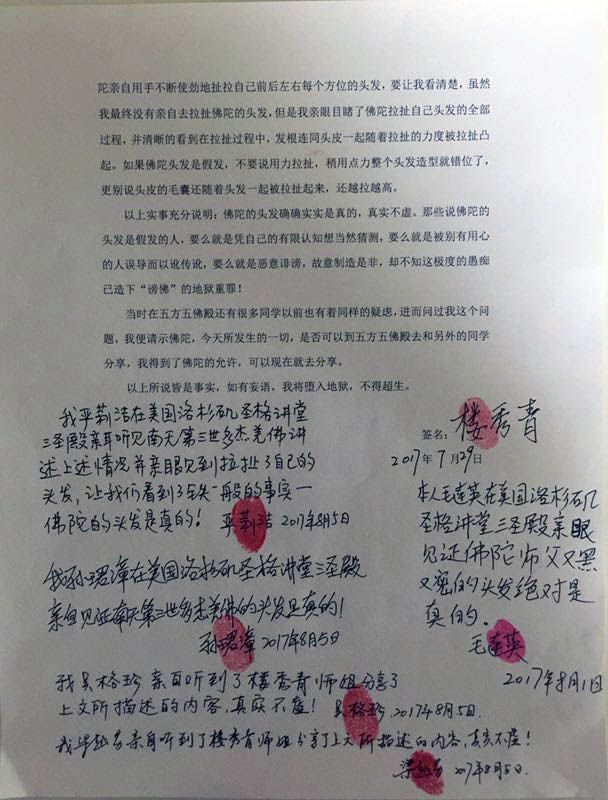 陀亲自用手不断使劲地扯拉自己前后左右每个方位的头发，要让我看清楚，虽然
我最终没有亲自去拉扯佛陀的头发，但是我亲眼目睹了佛陀拉扯自己头发的全部
过程，并清晰的看到在拉扯过程中，发根连同头皮一起随着拉扯的力度被拉扯凸
起。如果佛陀头发是假发，不要说用力拉扯，稍用点力整个头发造型就错位了，
更别说头皮的毛囊还随着头发一起被拉扯起来，还越拉越高。
以上实事充分说明：佛陀的头发确确实实是真的，真实不虚。那些说佛陀的
头发是假发的人，要么就是凭自己的有限认知想当然猜测，要么就是被别有用心
的人误导而以讹传讹，要么就是恶意诽谤，故意制造是非，却不知这极度的愚痴
已造下“谤佛”的地狱重罪！
当时在五方五佛殿还有很多同学以前也有着同样的疑虑，进而问过我这个问
题，我便请示佛陀，今天所发生的一切，是否可以到五方五佛殿去和另外的同学
分享，我得到了佛陀的允许，可以现在就去分享。
以上所说皆是事实，如有妄语，我将堕入地狱，不得超生。
签名：楼秀青
2017年7月29日
我平莉洁在美国洛杉矶圣格讲堂
三圣殿亲耳听见南无第三世多杰羌佛讲
述上述情况并亲眼见到拉扯了自己的
头发，让我们看到了铁一般的事实—
佛陀的头发是真的！ 平莉洁 2017年8月5日
本人毛莲英在美国洛杉矶
圣格讲堂三圣殿亲眼
见证佛陀师父又黑
又宽的头发绝对是
真的。
毛莲英
2017年8月1日
我孙珺漳在美国洛杉矶圣格讲堂三圣殿
亲自见证南无第三世多杰羌佛的头发是真的！
孙珺漳 2017年8月5日
我吴格珍亲自听到了楼秀青师姐分享了
上文所描述的内容，真实不虚！ 吴格珍 2017年8月5日.
亲自听到了楼秀青师姐分享了上文所描述的内容，真实不虚！
2017年8月5日.